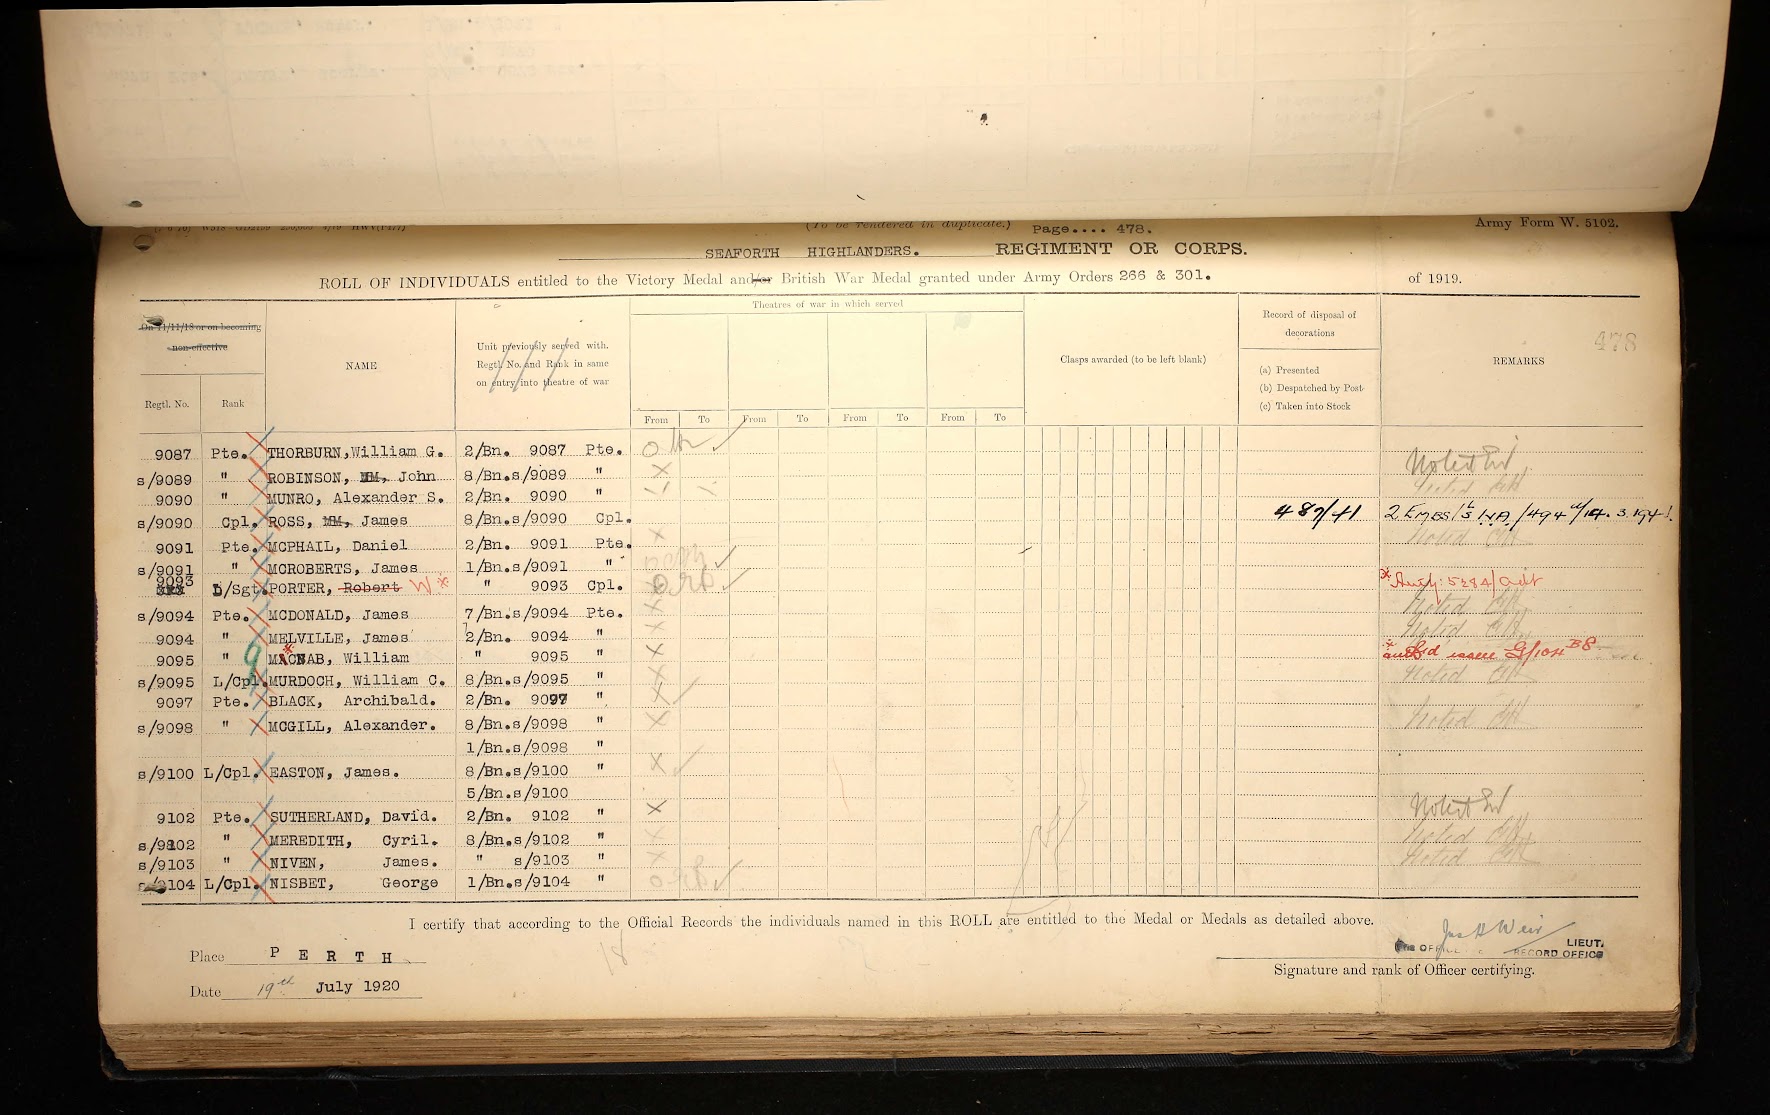 (To be rendered in duplicate.) Page.... 478. Army Form W. 5102.
SEAFORTH HIGHLANDERS. REGIMENT OR CORPS.
ROLL OF INDIVIDUALS entitled to the Victory Medal and/or British War Medal granted under Army Orders 266 & 301. of 1919.
Theatres of war in which served
On 11/11/18 or on becoming non-effective
Regtl. No.
Rank
NAME
Unit previously served with.
Regtl. No. and Rank in same
on entry into theatre of war
From To From To From To From To
Clasps awarded (to be left blank)
Record of disposal of
decorations
(a) Presented
(b) Despatched by Post
(c) Taken into Stock
REMARKS
478
9087 Pte. THORBURN, William G. 2/Bn. 9087 Pte.
s/9089 " ROBINSON, MM, John 8/Bn.s/9089 " Noted
9090 " MUNRO, Alexander S. 2/Bn. 9090 " Noted
s/9090 Cpl. ROSS, MM, James 8/Bn.s/9090 Cpl.
9091 Pte. MCPHAIL, Daniel 2/Bn. 9091 Pte. Noted
s/9091 " MCROBERTS, James 1/Bn.s/9091 "
9093 L/Sgt. PORTER, Robert W* " 9093 Cpl.
s/9094 Pte. MCDONALD, James 7/Bn.s/9094 Pte. Noted
9094 " MELVILLE, James 2/Bn. 9094 " Noted
9095 " MACNAB, William " 9095 "
s/9095 L/Cpl. MURDOCH, William C. 8/Bn.s/9095 " Noted
9097 Pte. BLACK, Archibald. 2/Bn. 9097 "
s/9098 " MCGILL, Alexander. 8/Bn.s/9098 " Noted
1/Bn.s/9098 "
s/9100 L/Cpl. EASTON, James. 8/Bn.s/9100 "
5/Bn.s/9100
9102 Pte. SUTHERLAND, David. 2/Bn. 9102 " Noted
s/9102 " MEREDITH, Cyril. 8/Bn.s/9102 " Noted
s/9103 " NIVEN, James. " s/9103 " Noted
s/9104 L/Cpl. NISBET, George 1/Bn.s/9104 "
I certify that according to the Official Records the individuals named in this ROLL are entitled to the Medal or Medals as detailed above.
Place PERTH.
Jas H Weir
LIEUT.
RECORD OFFICE
Signature and rank of Officer certifying.
Date 19th July 1920